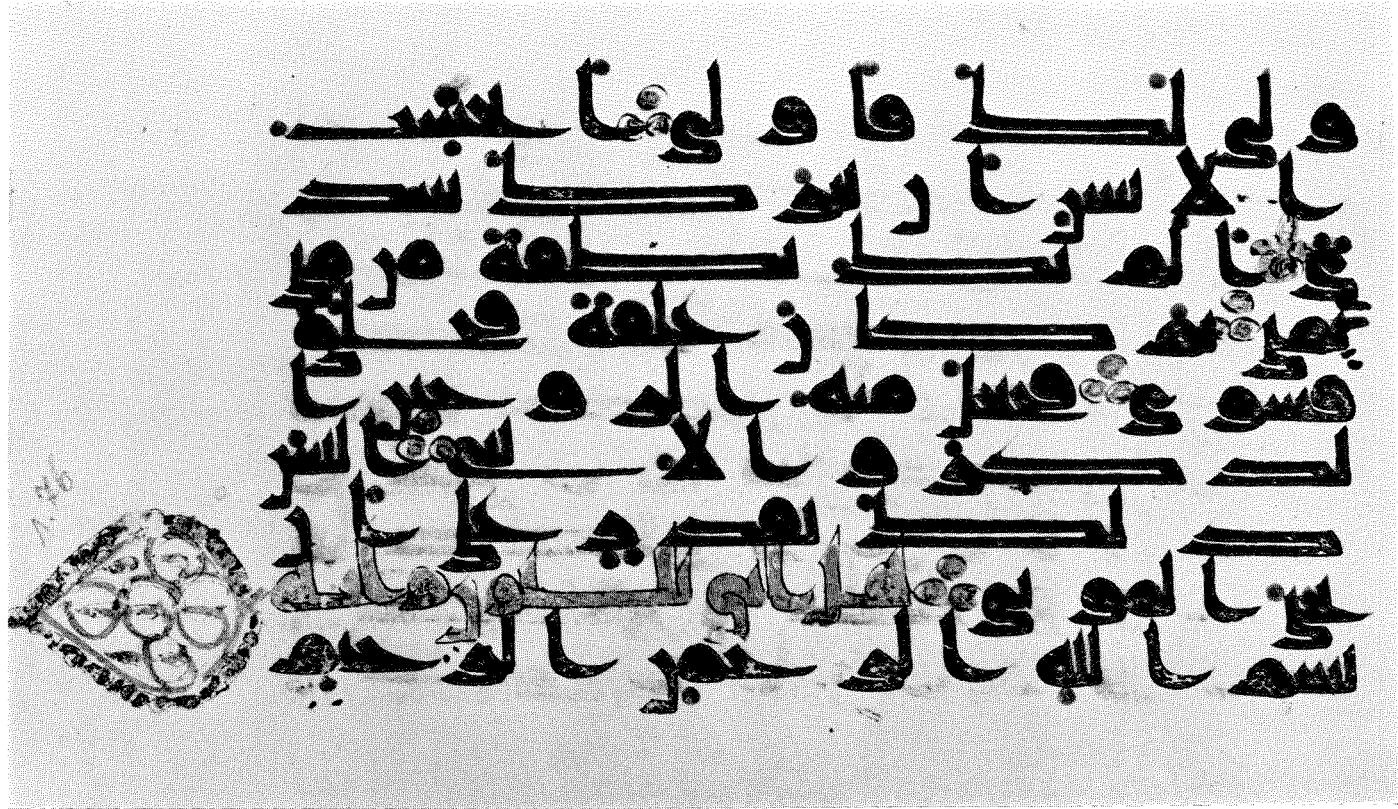 و لى لك فا و لى ا يحسب
ا لا نسا ن ا ن يتر ك سد
ى ا لم يك نطفة من من
ى يمنى ثم كا ن علقة فخلق
فسو ى فجعل منه ا لز و جين ا
لذ كر و ا لا نثى ا ليس
ذ لك بقد ر على ا ن
يحى ا لمو تى
بسم ا لله ا لر حمن ا لر حيم